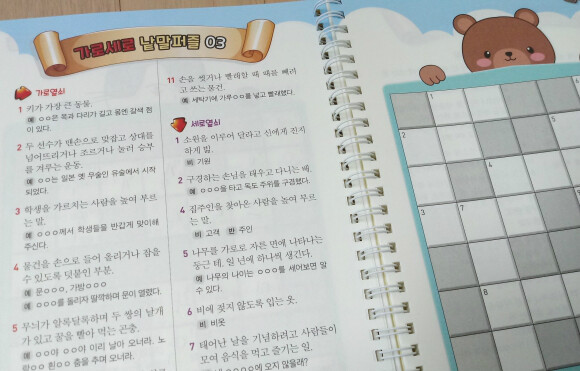 가로세로 낱말퍼즐 03
가로열쇠
1 키가 가장 큰 동물.
예 ㅇㅇ은 목과 다리가 길고 몸엔 갈색 점
이 있다.
2 두 선수가 맨손으로 맞잡고 상대를
넘어뜨리거나 조르거나 눌러 승부
를 겨루는 운동.
예 ㅇㅇ는 일본 옛 무술인 유술에서 시작
되었다.
3 학생을 가르치는 사람을 높여 부르
는 말.
예 ㅇㅇㅇ께서 학생들을 반갑게 맞이해
주신다.
4 물건을 손으로 들어 올리거나 잡을
수 있도록 덧붙인 부분.
예 문ㅇㅇㅇ, 가방ㅇㅇㅇ
예 ㅇㅇㅇ를 돌리자 딸깍하며 문이 열렸다.
5 무늬가 알록달록하며 두 쌍의 날개
가 있고 꿀을 빨아 먹는 곤충.
예 ㅇㅇ야 ㅇㅇ야 이리 날아 오너라. 노
랑ㅇㅇ 흰ㅇㅇ 춤을 추며 오너라.
11 손을 씻거나 빨래할 때 때를 빼려
고 쓰는 물건.
예 세탁기에 가루ㅇㅇ를 넣고 빨래했다.
세로열쇠
1 소원을 이루어 달라고 신에게 간절
하게 빎.
비 기원
2 구경하는 손님을 태우고 다니는 배.
예 ㅇㅇㅇ을 타고 독도 주위를 구경했다.
4 집주인을 찾아온 사람을 높여 부르
는 말.
비 고객 반 주인
5 나무를 가로로 자른 면에 나타나는
둥근 테. 일 년에 하나씩 생긴다.
예 나무의 나이는 ㅇㅇㅇ를 세어보면 알
수 있다.
6 비에 젖지 않도록 입는 옷.
비 비옷
7 태어난 날을 기념하려고 사람들이
모여 음식을 먹고 즐기는 일.
ㅇㅇㅇㅇ에 오지 않을래?
1
2
3
7
8